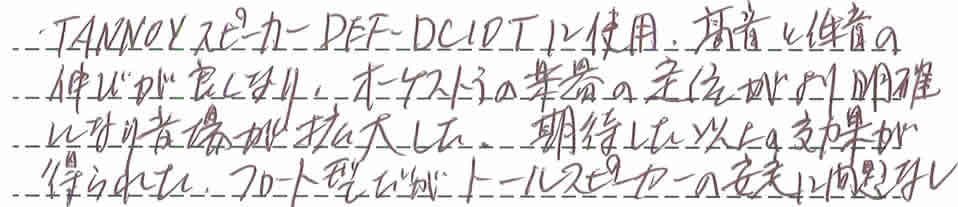 ・TANNOYスピーカーDEF-DC10Tに使用、高音と低音の
伸びが良くなり、オーケストラの楽器の定位がより明確
になり音場が拡大した。期待した以上の効果が
得られた。フロート型だがトールスピカーの安定に問題なし